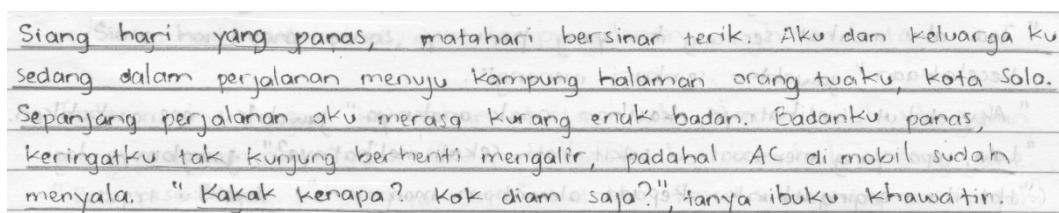 Siang hari yang panas, matahari bersinar terik. Aku dan keluarga ku
sedang dalam perjalanan menuju kampung halaman orang tuaku, kota solo.
Sepanjang perjalanan aku merasa kurang enak badan. Badanku panas,
keringatku tak kunjung berhenti mengalir, padahal AC di mobil sudah
menyala. "Kakak kenapa? Kok diam saja?", tanya ibuku khawatir.